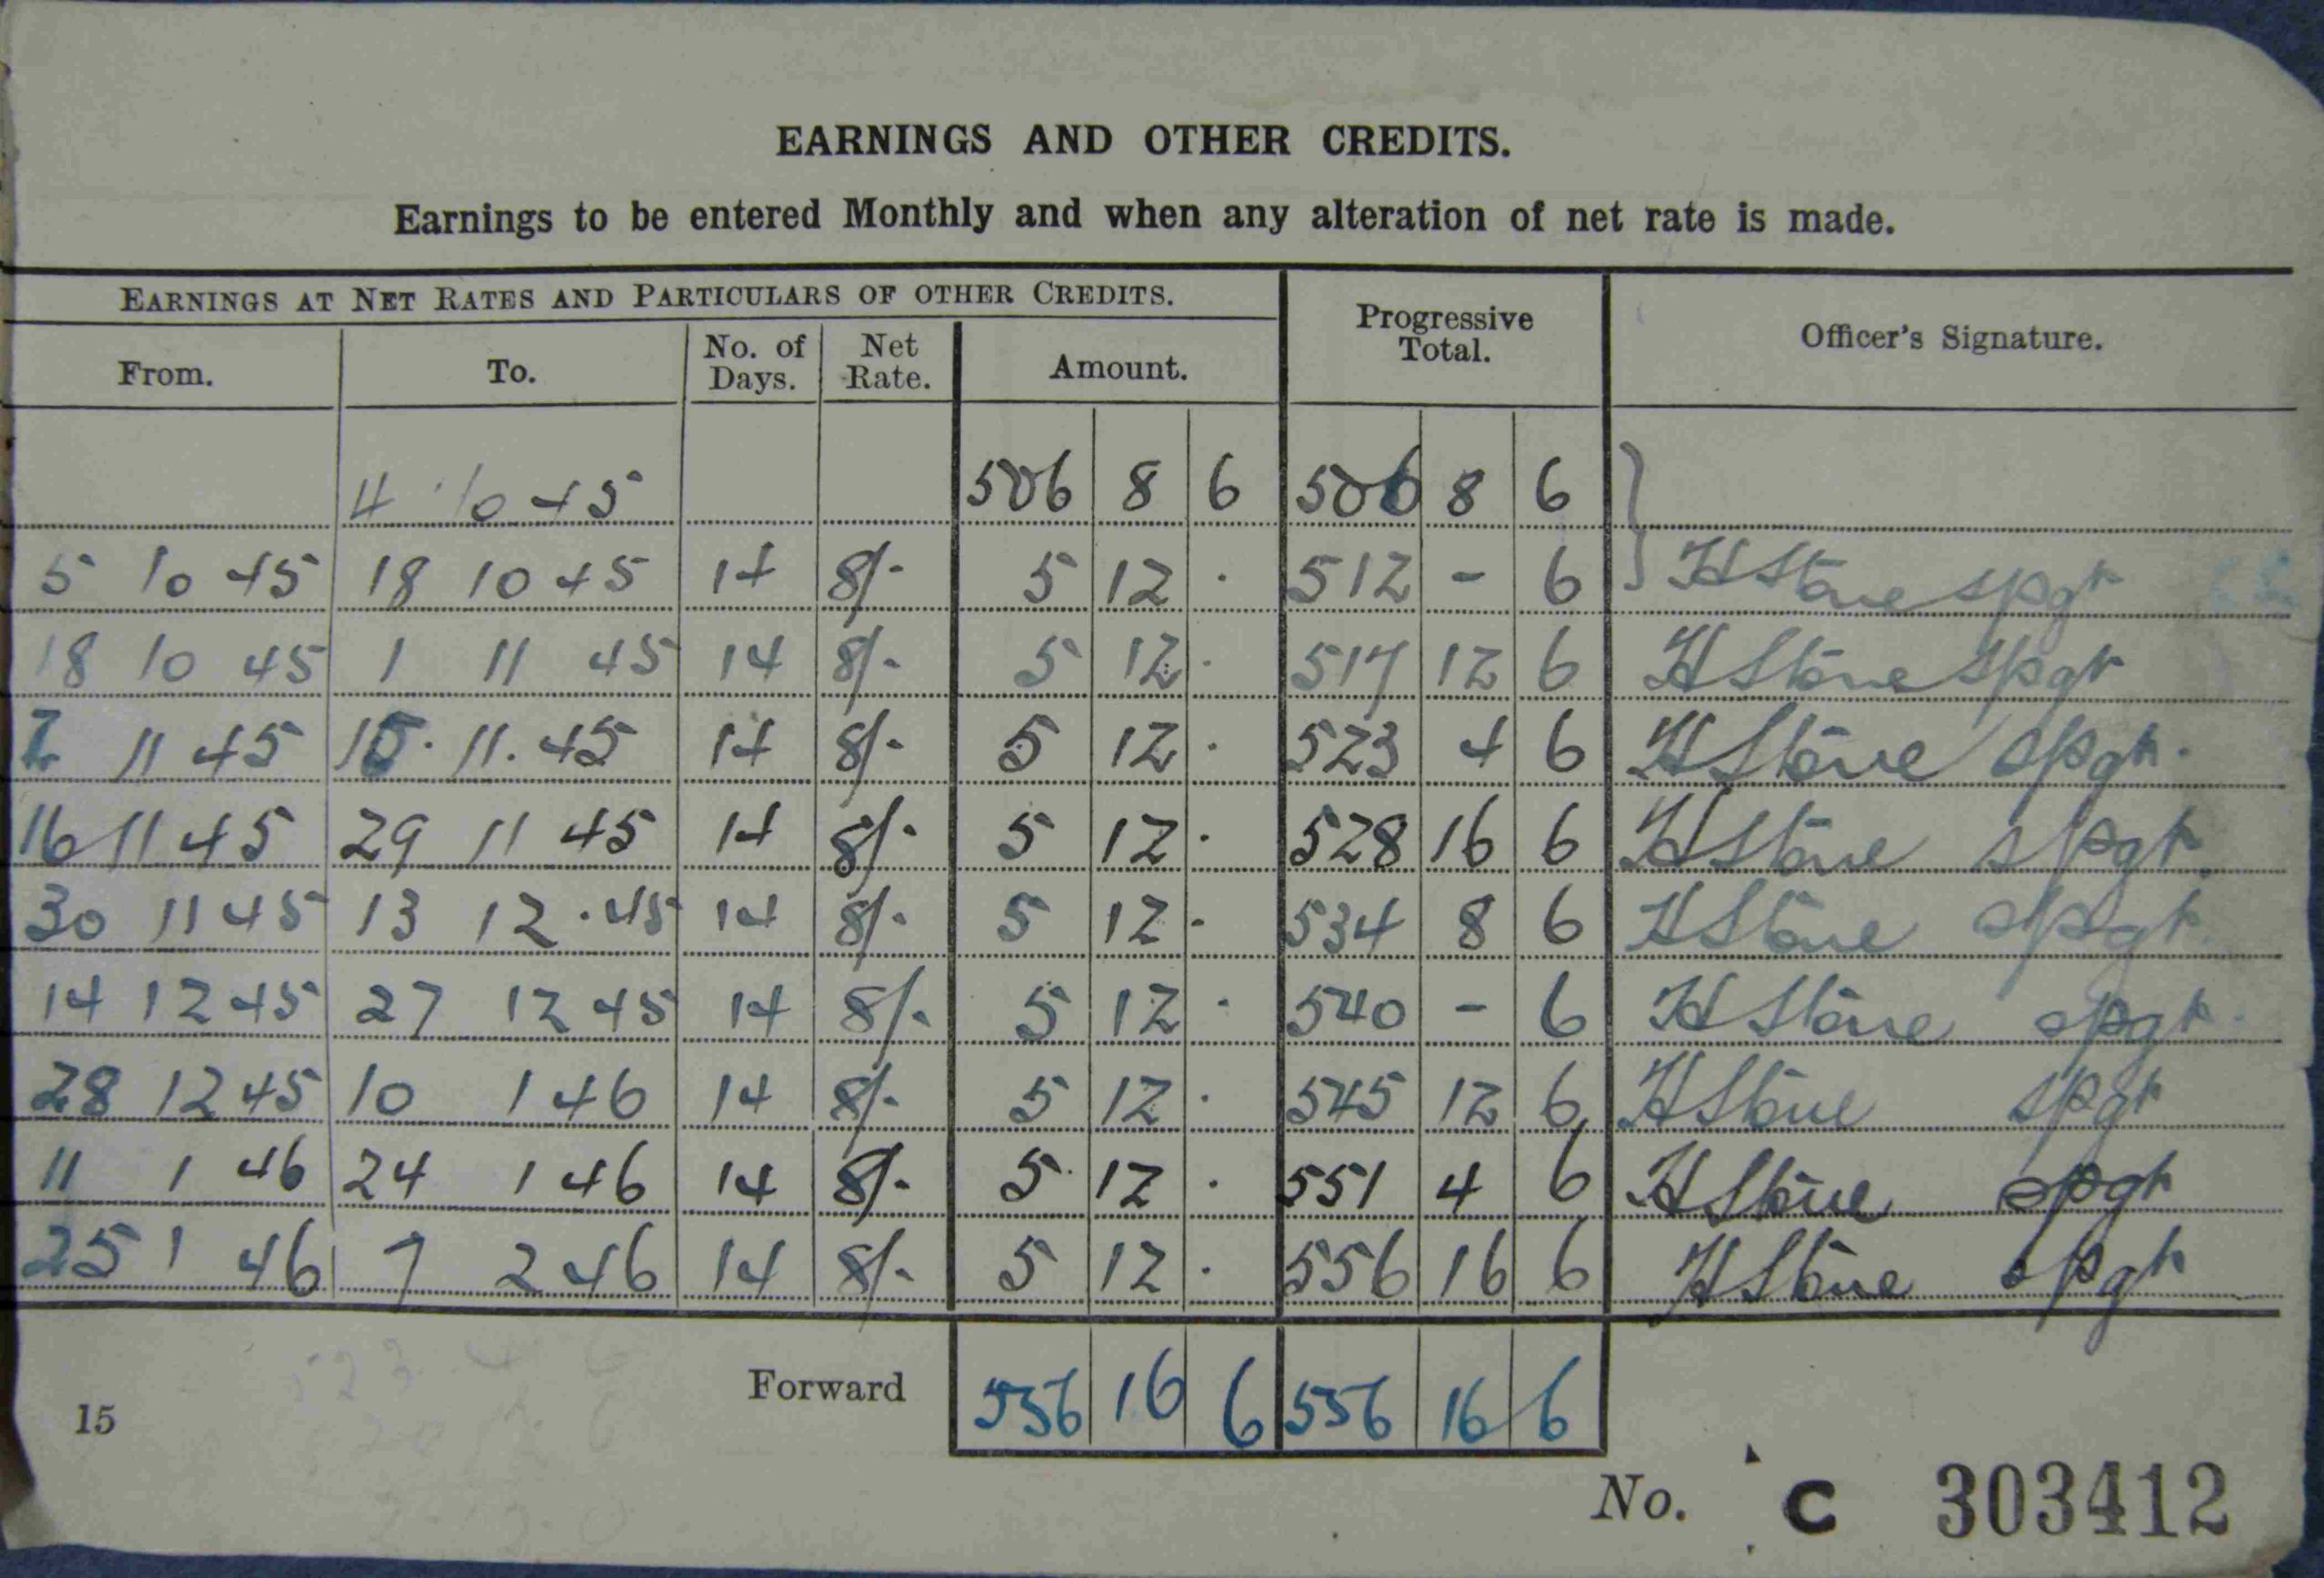 EARNINGS AND OTHER CREDITS.
Earnings to be entered Monthly and when any alteration of net rate is made.
EARNINGS AT NET RATES AND PARTICULARS OF OTHER CREDITS. Progressive Total. Officer's Signature.
From. To. No. of Days. Net Rate. Amount.
4 10 45 506 8 6 506 8 6
5 10 45 18 10 45 14 8/- 5 12 · 512 - 6 H Stone
18 10 45 1 11 45 14 8/- 5 12 · 517 12 6 H Stone
2 11 45 15· 11. 45 14 8/- 5 12 · 523 4 6 H Stone
16 11 45 29 11 45 14 8/- 5 12 · 528 16 6 H Stone
30 11 45 13 12 · 45 14 8/- 5 12 · 534 8 6 H Stone
14 12 45 27 12 45 14 8/- 5 12 · 540 - 6 H Stone
28 12 45 10 1 46 14 8/- 5 12 · 545 12 6 H Stone
11 1 46 24 1 46 14 8/- 5 12 · 551 4 6 H Stone
25 1 46 7 2 46 14 8/- 5 12 · 556 16 6 H Stone
Forward 556 16 6 556 16 6
15
No. C 303412